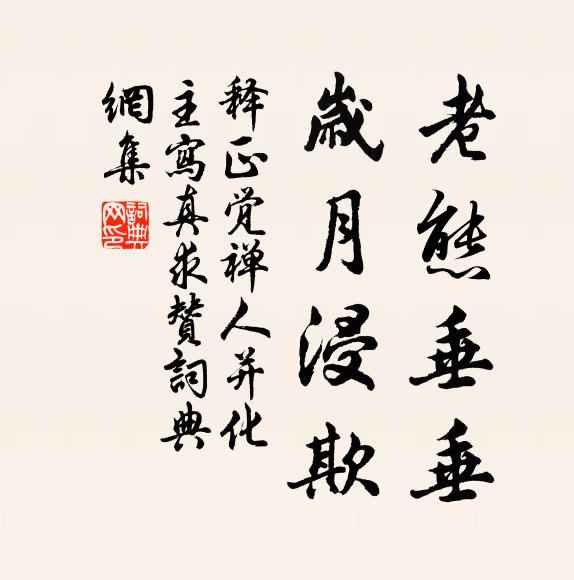 老熊垂垂
歲月浸欺
释正觉禅人并化
主寫真求賛詞典
網集
詞典網印